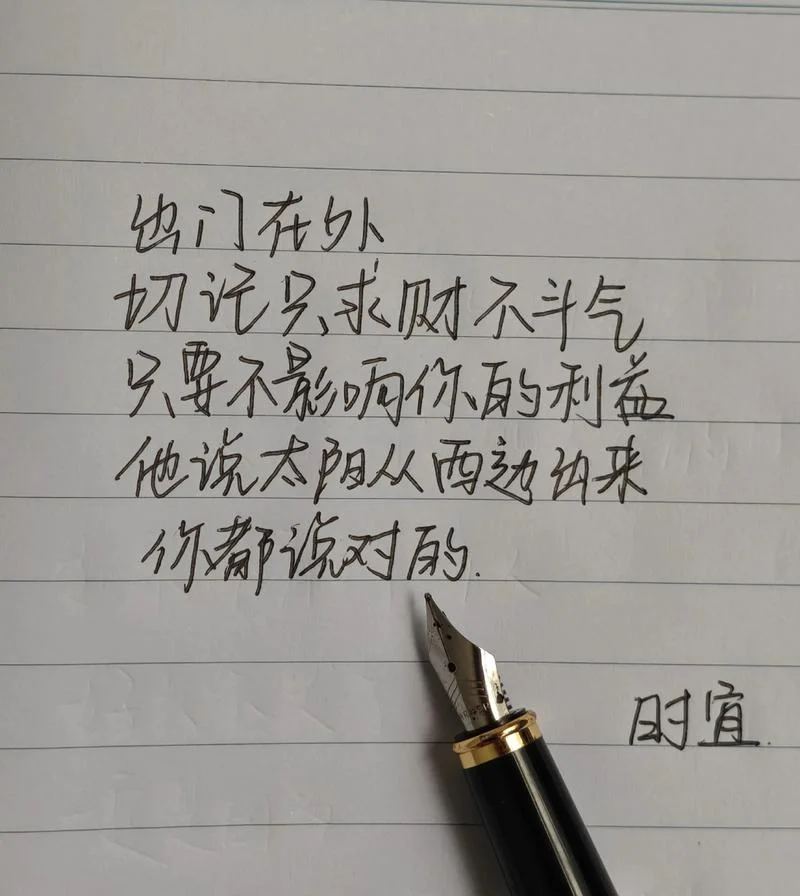 出门在外
切记只求财不斗气
只要不影响你的利益
他说太阳从西边出来
你都说对的.
时宜.